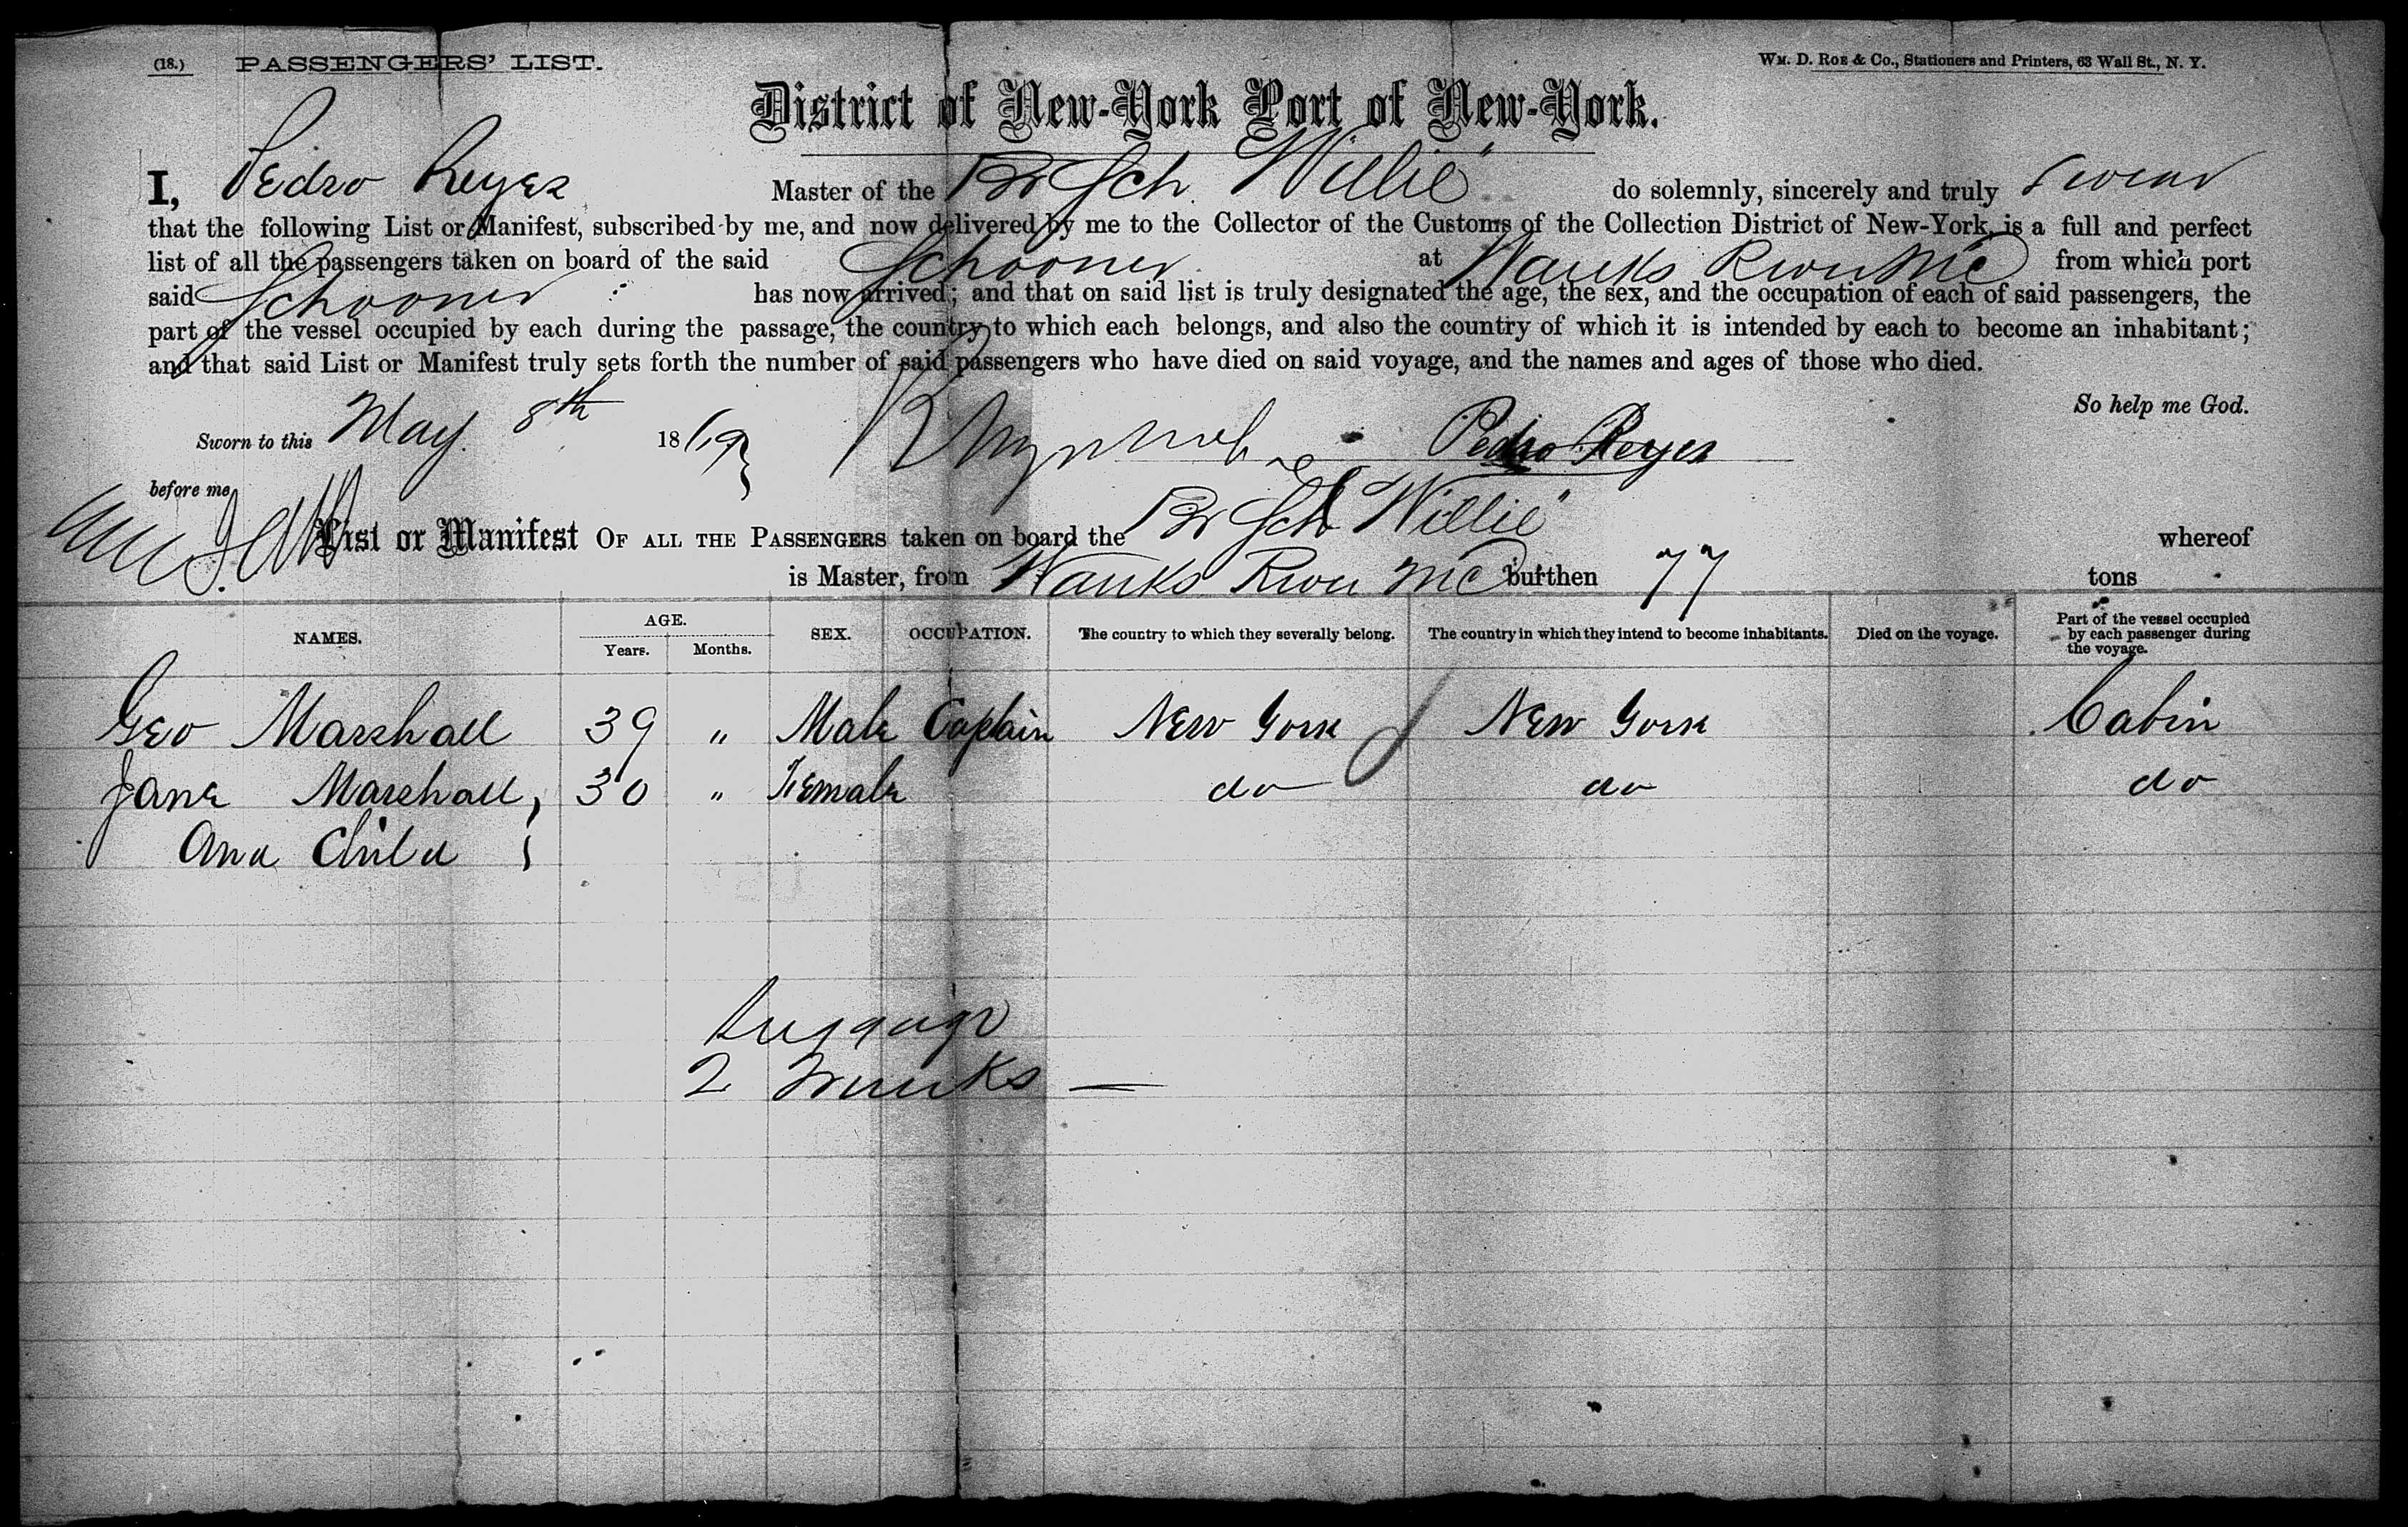 (18.) PASSENGERS' LIST.
WM. D. ROE & CO., Stationers and Printers, 63 Wall St., N. Y.
District of New-York Port of New-York.
I, Pedro Reyes Master of the Br Sch "Willie" do solemnly, sincerely and truly swear
that the following List or Manifest, subscribed by me, and now delivered by me to the Collector of the Customs of the Collection District of New-York, is a full and perfect
list of all the passengers taken on board of the said Schooner at Wanks River from which port
said Schooner has now arrived; and that on said list is truly designated the age, the sex, and the occupation of each of said passengers, the
part of the vessel occupied by each during the passage, the country to which each belongs, and also the country of which it is intended by each to become an inhabitant;
and that said List or Manifest truly sets forth the number of said passengers who have died on said voyage, and the names and ages of those who died.
So help me God.
Sworn to this May 8th 1869 Pedro Reyes
before me
List or Manifest OF ALL THE PASSENGERS taken on board the Br Sch "Willie" whereof
is Master, from Wanks River burthen 77 tons
NAMES. AGE. Years. Months. SEX. OCCUPATION. The country to which they severally belong. The country in which they intend to become inhabitants. Died on the voyage. Part of the vessel occupied by each passenger during the voyage.
Geo Marshall 39 " Male Captain New York New York Cabin
Jane Marshall, 30 " Female do do do
and Child
Luggage
2 Trunks —